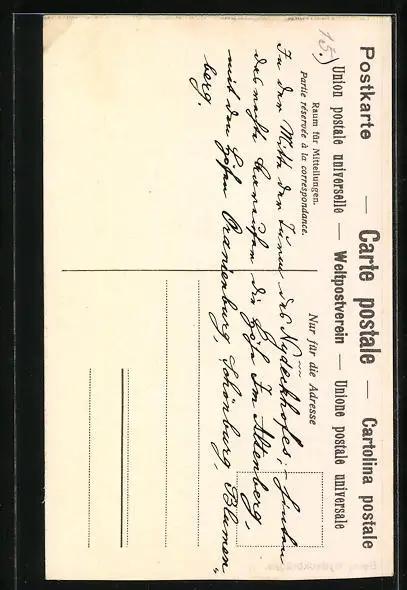 Postkarte — Carte postale — Cartolina postale
Union postale universelle — Weltpostverein — Unione postale universale
15.)
Raum für Mitteilungen.
Partie réservée à la correspondance.
Nur für die Adresse
In der Mitte der Turm des Nydeckhofes, hinten
das nächste die Höfe Im Altenberg,
mit den Höfen Oranienburg, Schönburg, Blumen-
berg.